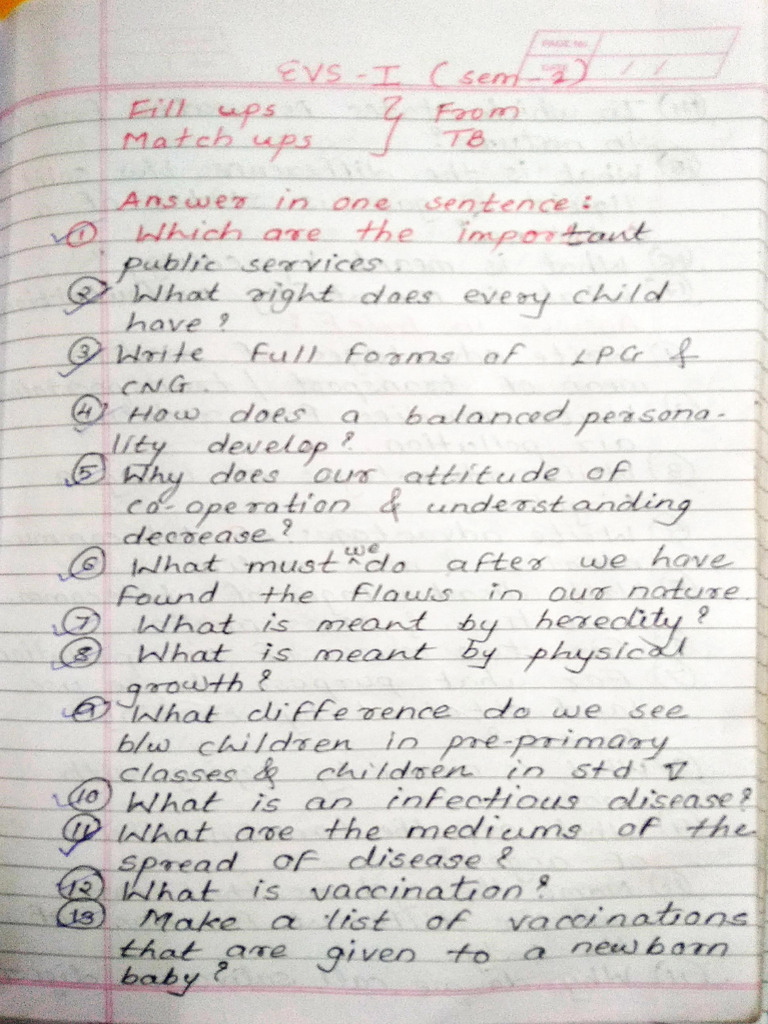 PAGE NO.
DATE / /
EVS - I (sem - 2)
Fill ups } From
Match ups TB
Answer in one sentence:
① Which are the important
public services
② What right does every child
have?
③ Write full forms of LPG &
CNG.
④ How does a balanced persona-
lity develop?
⑤ Why does our attitude of
co-operation & understanding
decrease?
⑥ What must we do after we have
found the flaws in our nature.
⑦ What is meant by heredity?
⑧ What is meant by physical
growth?
⑨ What difference do we see
b/w children in pre-primary
classes & children in std V.
⑩ What is an infectious disease?
⑪ What are the mediums of the
spread of disease?
⑫ What is vaccination?
⑬ Make a list of vaccinations
that are given to a newborn
baby?